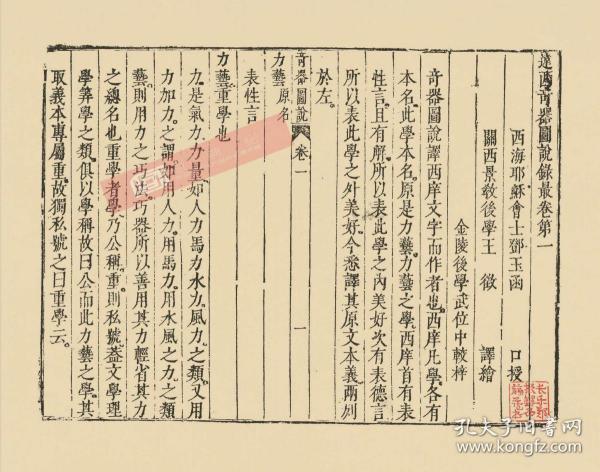 遠西奇器圖說錄最卷第一
西海耶穌會士鄧玉函　口授
關西景教後學王　徵　譯繪
金陵後學武位中較梓
奇器圖說譯西庠文字而作者也西庠凡學各有
本名此學本名原是力藝力藝之學西庠首有表
性言且有解所以表此學之內美好次有表德言
所以表此學之外美好今悉譯其原文本義兩列
於左
奇器圖說　卷一　一
力藝原名
表性言
力藝重學也
力是氣力力量如人力馬力水力風力之類又用
力加力之謂如用人力用馬力用水風之力之類
藝則用力之巧法巧器所以善用其力輕省其力
之總名也重學者學乃公稱重則私號蓋文學理
學算學之類俱以學稱故曰公而此力藝之學其
取義本專屬重故獨私號之曰重學云
孔夫子旧书网
www.kongfz.com